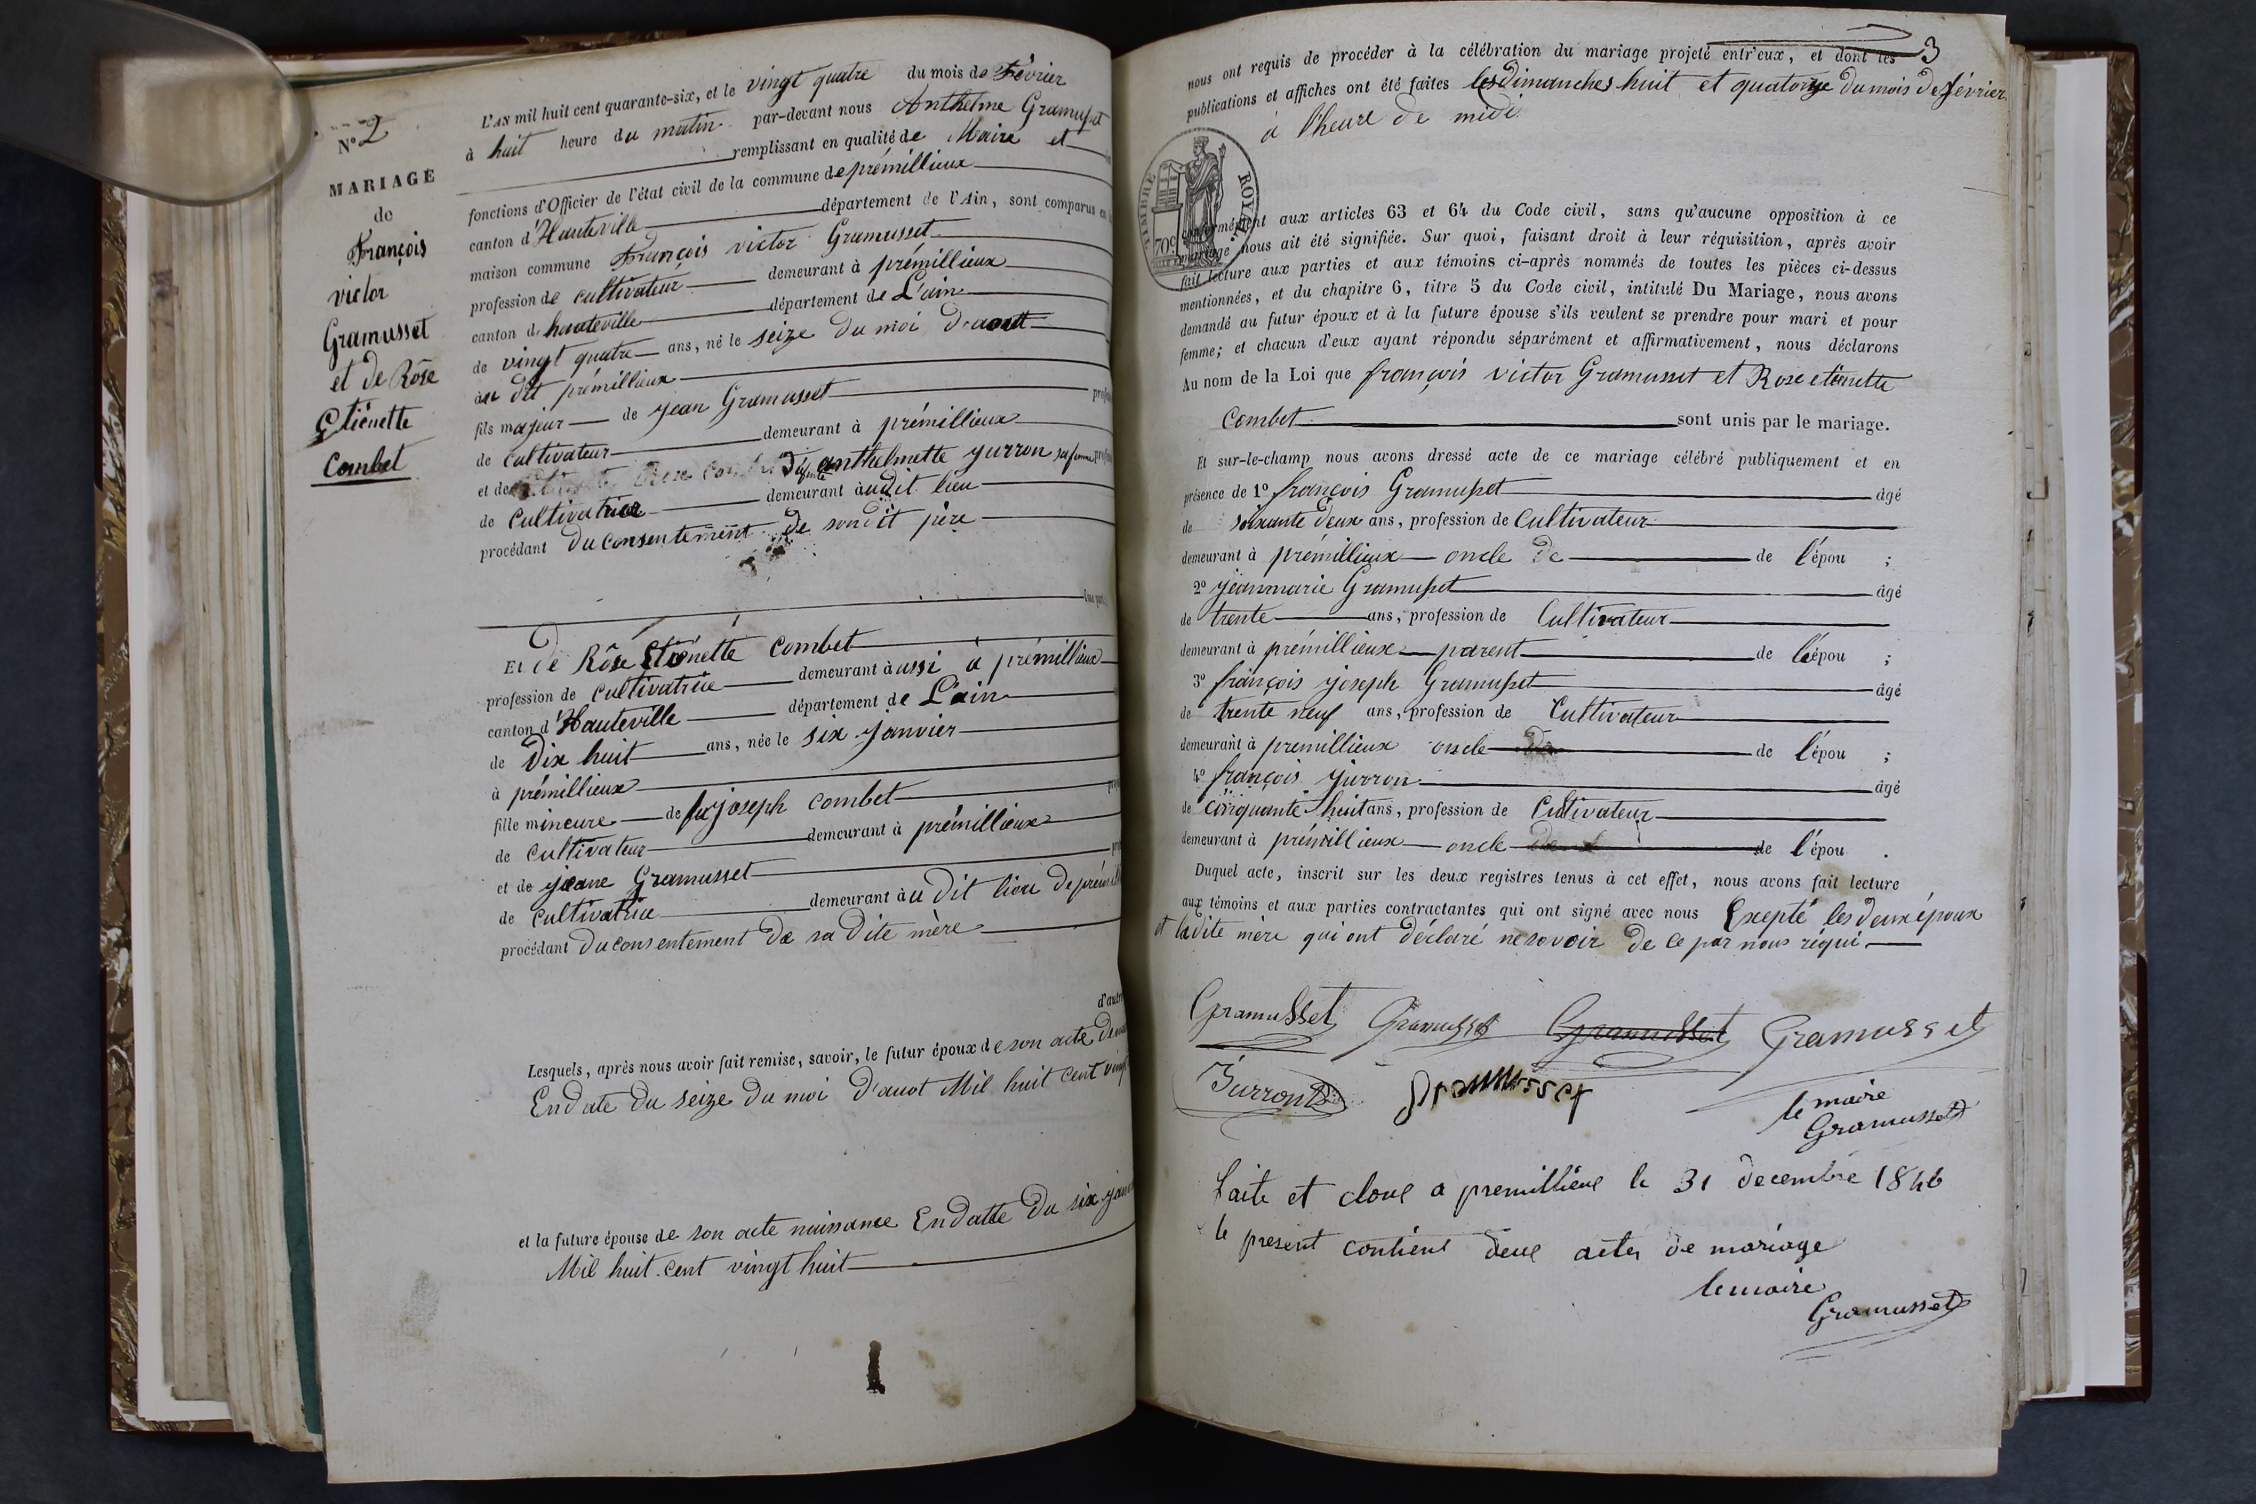 N° 2
MARIAGE
de
François
victor
Gramusset
et de Rose
Etiénette
Combet
L'AN mil huit cent quarante-six, et le vingt quatre du mois de Février
à huit heure du matin par-devant nous Anthelme Gramusset
remplissant en qualité de Maire et
fonctions d'Officier de l'état civil de la commune de prémillieux
canton d'Hauteville département de l'Ain, sont comparus en
maison commune François victor Gramusset
profession de cultivateur demeurant à prémillieux
canton de hauteville département de L'ain
de vingt quatre ans, né le seize du moi d'aout
au dit prémillieux
fils majeur de jean Gramusset
de cultivateur demeurant à prémillieux
et de anthelmette yurron sa femme
de cultivatrice demeurant audit lieu
procédant du consentement de son dit père
Et de Rôse Etiénette Combet
profession de cultivatrice demeurant à aussi à prémillieux
canton d'Hauteville département de L'ain
de dix huit ans, née le six janvier
à prémillieux
fille mineure de fu joseph combet
de cultivateur demeurant à prémillieux
et de jeane Gramusset
de cultivatrice demeurant au dit lieu de
procédant du consentement de sa dite mère
Lesquels, après nous avoir fait remise, savoir, le futur époux de son acte de
En date du seize du moi d'auot Mil huit cent vingt
et la future épouse de son acte naissance En datte du six
Mil huit cent vingt huit
3
nous ont requis de procéder à la célébration du mariage projeté entr'eux, et dont les
publications et affiches ont été faites les dimanches huit et quatorze du mois de février
à l'heure de midi
TIMBRE ROYAL
70c
conformément aux articles 63 et 64 du Code civil, sans qu'aucune opposition à ce
mariage nous ait été signifiée. Sur quoi, faisant droit à leur réquisition, après avoir
fait lecture aux parties et aux témoins ci-après nommés de toutes les pièces ci-dessus
mentionnées, et du chapitre 6, titre 5 du Code civil, intitulé Du Mariage, nous avons
demandé au futur époux et à la future épouse s'ils veulent se prendre pour mari et pour
femme; et chacun d'eux ayant répondu séparément et affirmativement, nous déclarons
Au nom de la Loi que françois victor Gramusset et Rose etiénette
Combet sont unis par le mariage.
Et sur-le-champ nous avons dressé acte de ce mariage célébré publiquement et en
présence de 1° françois Gramusset âgé
de soixante deux ans, profession de Cultivateur
demeurant à prémillieux oncle de de l'épou ;
2° jeanmarie Gramusset âgé
de trente ans, profession de Cultivateur
demeurant à prémillieux parent de l'épou ;
3° françois joseph Gramusset âgé
de trente neuf ans, profession de Cultivateur
demeurant à premillieux oncle de l'épou ;
4° françois yurron âgé
de cinquante huit ans, profession de Cultivateur
demeurant à prémillieux oncle de l'épou .
Duquel acte, inscrit sur les deux registres tenus à cet effet, nous avons fait lecture
aux témoins et aux parties contractantes qui ont signé avec nous Excepté les deux époux
et ladite mère qui ont déclaré ne savoir de ce par nous réqui
Gramusset Gramusset Gramusset Gramusset
Yurron Gramusset
le maire
Gramusset
faite et cloue a premillieux le 31 decembre 1846
le present contient deux actes de mariage
le maire
Gramusset